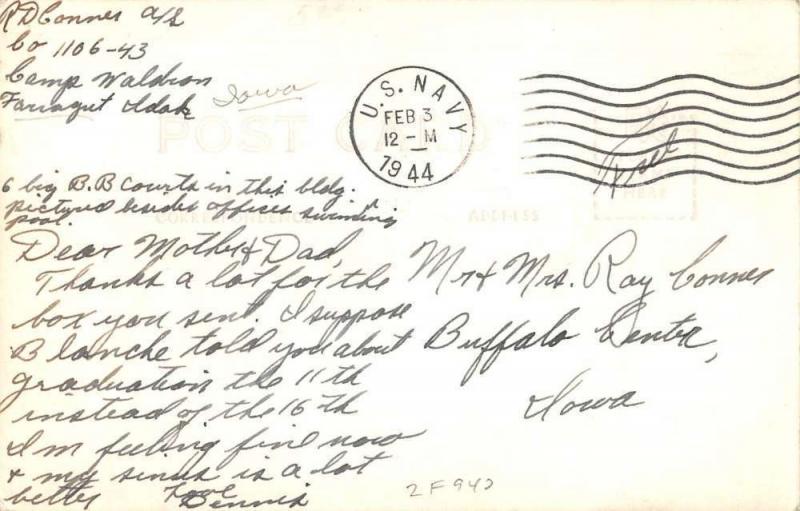 R D Conner A/S
Co 1106-43
Camp Waldron
Farragut Idah
Iowa
U.S. NAVY
FEB 3
12 - M
1944
Free
POST CARD
HERE
CORRESPONDENCE
ADDRESS
6 big B.B Courts in this bldg.
pictured besides offices swimming
pool.
Dear Mother & Dad,
Thanks a lot for the
box you sent. I suppose
Blanche told you about
graduation the 11th
instead of the 16th
I'm feeling fine now
& my sinus is a lot
better Love
Dennis
Mr & Mrs. Ray Conner
Buffalo Center,
Iowa
2F942